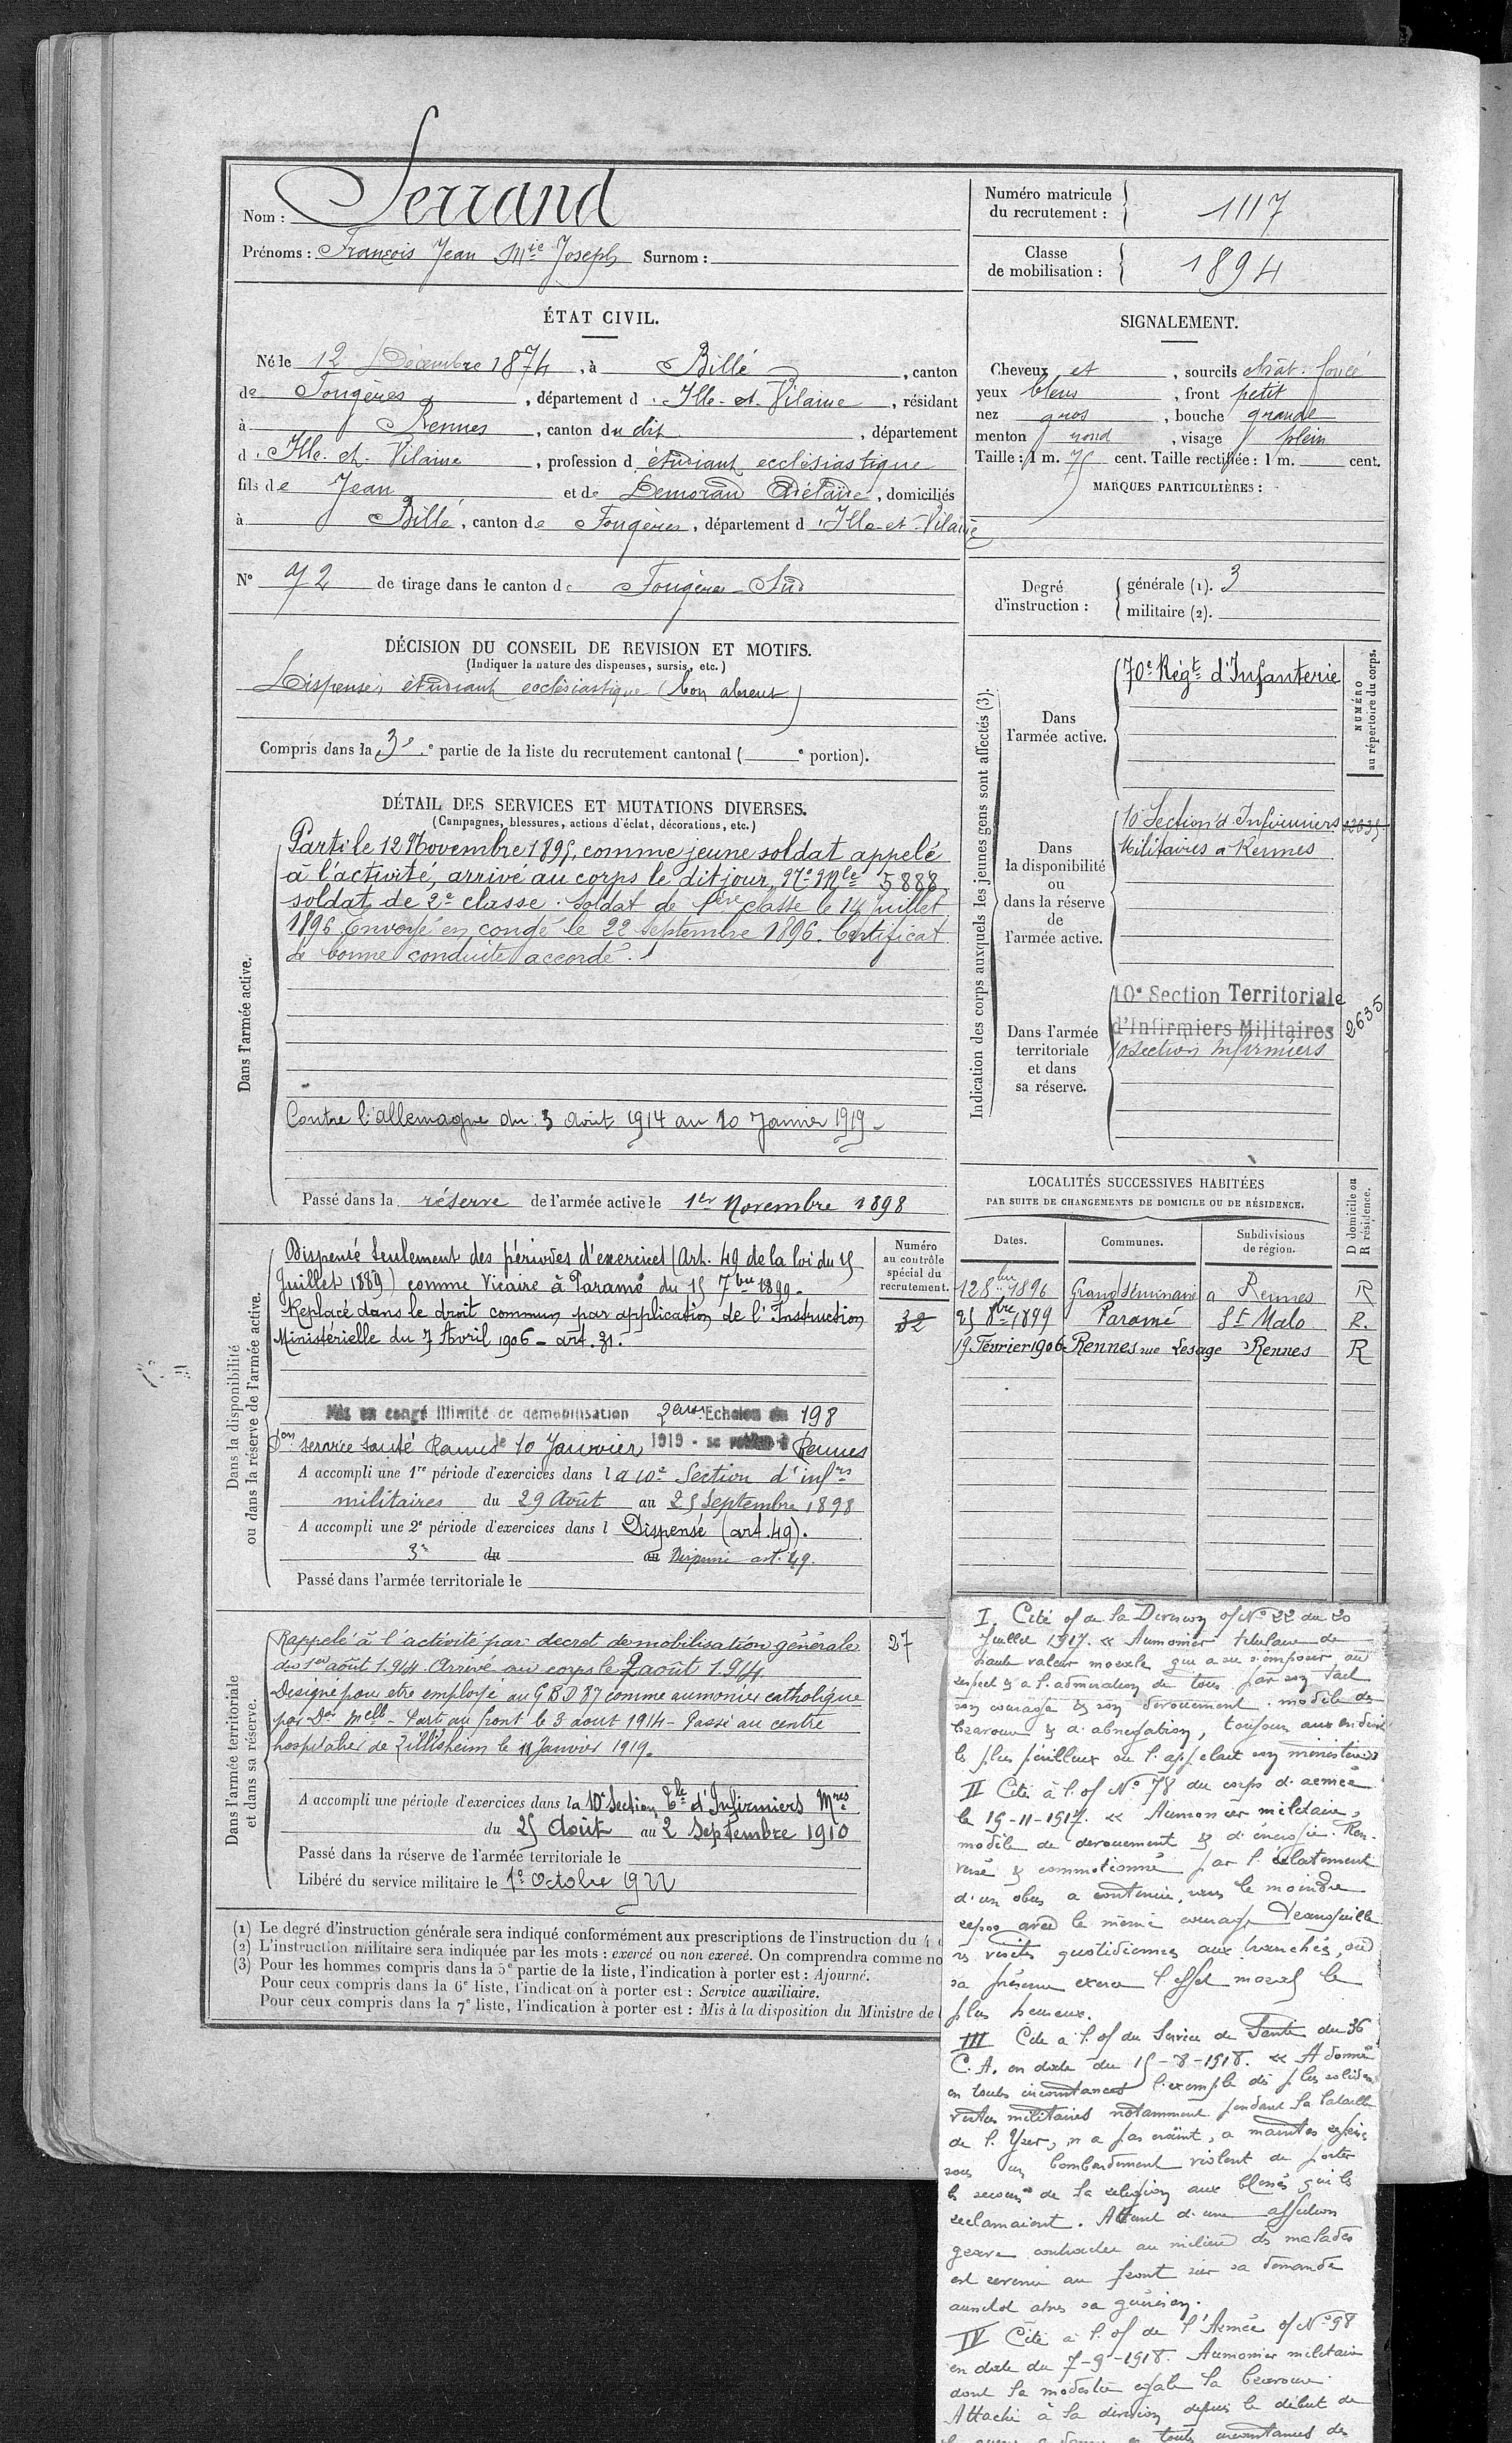 Nom : Serrand
Prénoms : François Jean Mie Joseph Surnom :
Numéro matricule du recrutement : 1117
Classe de mobilisation : 1894
ÉTAT CIVIL.
Né le 12 Décembre 1874, à Billé, canton
de Fougères, département d'Ille-et-Vilaine, résidant
à Rennes, canton du dit, département
d'Ille-et-Vilaine, profession d étudiant ecclésiastique
fils de Jean et de Lemoran Adélaïde, domiciliés
à Billé, canton de Fougères, département d'Ille-et-Vilaine
N° 72 de tirage dans le canton de Fougères-Sud
SIGNALEMENT.
Cheveux et, sourcils chât. foncé
yeux bleus, front petit
nez gros, bouche grande
menton rond, visage plein
Taille : 1 m. 75 cent. Taille rectifiée : 1 m. cent.
MARQUES PARTICULIÈRES :
Degré d'instruction : générale (1). 3
militaire (2).
DÉCISION DU CONSEIL DE REVISION ET MOTIFS.
(Indiquer la nature des dispenses, sursis, etc.)
Dispensé, étudiant ecclésiastique (bon absent)
Compris dans la 3e partie de la liste du recrutement cantonal ( e portion).
DÉTAIL DES SERVICES ET MUTATIONS DIVERSES.
(Campagnes, blessures, actions d'éclat, décorations, etc.)
Dans l'armée active.
Parti le 12 Novembre 1895, comme jeune soldat appelé
à l'activité, arrivé au corps le dit jour, N° Mle 5888
soldat de 2e classe. Soldat de 1ère classe le 14 Juillet
1896. Envoyé en congé le 22 septembre 1896. Certificat
de bonne conduite accordé.
Contre l'allemagne du 3 Août 1914 au 10 Janvier 1919
Passé dans la réserve de l'armée active le 1er Novembre 1898
Indication des corps auxquels les jeunes gens sont affectés (3).
NUMÉRO au répertoire du corps.
Dans l'armée active.
70e Régt d'Infanterie
Dans la disponibilité ou dans la réserve de l'armée active.
10e Section d'Infirmiers
Militaires à Rennes
Dans l'armée territoriale et dans sa réserve.
10e Section Territoriale
d'Infirmiers Militaires
Section Infirmiers
2635
LOCALITÉS SUCCESSIVES HABITÉES
PAR SUITE DE CHANGEMENTS DE DOMICILE OU DE RÉSIDENCE.
Dates. Communes. Subdivisions de région. D domicile ou R résidence.
12 8bre 1896 Grand Séminaire à Rennes R
25 8bre 1899 Paramé St Malo R.
19 Février 1906 Rennes rue Lesage Rennes R
Dans la disponibilité ou dans la réserve de l'armée active.
Numéro au contrôle spécial du recrutement.
32
Dispensé seulement des périodes d'exercices (Art. 49 de la loi du 15
Juillet 1889) comme Vicaire à Paramé du 15 7bre 1899.
Replacé dans le droit commun par application de l'Instruction
Ministérielle du 7 Avril 1906 - art. 31.
Mis en congé illimité de démobilisation 2eme Echelon du 198
Don service santé Rennes le 10 Janvier 1919 - se retire à Rennes
A accompli une 1re période d'exercices dans la 10e Section d'infrs
militaires du 29 Août au 25 Septembre 1898
A accompli une 2e période d'exercices dans l Dispensé (art. 49).
3e du au Dispensé art. 49.
Passé dans l'armée territoriale le
Dans l'armée territoriale et dans sa réserve.
27
Rappelé à l'activité par decret de mobilisation générale
du 1er août 1914. Arrivé au corps le 2 août 1914
Designé pour etre employé au GBD 87 comme aumonier catholique
par Don Melle - Parti au front le 3 aout 1914 - Passé au centre
hospitalier de Zillisheim le Janvier 1919.
A accompli une période d'exercices dans la 10e Section Tle d'Infirmiers Mres
du 25 Août au 2 Septembre 1910
Passé dans la réserve de l'armée territoriale le
Libéré du service militaire le 1er Octobre 1922
(1) Le degré d'instruction générale sera indiqué conformément aux prescriptions de l'instruction du 4
(2) L'instruction militaire sera indiquée par les mots : exercé ou non exercé. On comprendra comme no
(3) Pour les hommes compris dans la 5e partie de la liste, l'indication à porter est : Ajourné.
Pour ceux compris dans la 6e liste, l'indication à porter est : Service auxiliaire.
Pour ceux compris dans la 7e liste, l'indication à porter est : Mis à la disposition du Ministre de
I. Cité of de la Division of N° 22 du 20
Juillet 1917. « Aumonier titulaire de
haute valeur morale qui a su s'imposer au
respect & a l'admiration de tous par son tact
son courage & son dévouement. modèle de
bravoure & d'abnégation, toujours aux endroits
les plus périlleux où l'appelait son ministère »
II Cité à l'of N° 78 du corps d'armée
le 19-11-1917. « Aumonier militaire,
modèle de devouement & d'énergie. Ren-
versé & commotionné par l'éclatement
d'un obus a continué, sans le moindre
repos avec le même courage tranquille
ses visites quotidiennes aux tranchés, où
sa présence exerce l'effet moral le
plus heureux.
III Cité a l'of du Service de Santé du 36
C.A. en date du 15-8-1918. « A donné
en toutes circonstances l'exemple des plus solides
vertus militaires notamment pendant la bataille
de l'Yser, n'a pas craint, a maintes reprises
sous un bombardement violent de porter
les secours de la religion aux blessés qui les
reclamaient. Atteint d'une affection
grave contractée au milieu des malades
est revenu au front sur sa demande
aussitot après sa guérison.
IV Cité à l'of de l'Armée of N° 98
en date du 7-9-1918. Aumonier militaire
dont la modestie égale la bravoure
Attaché à la division depuis le début de
toutes circonstances de